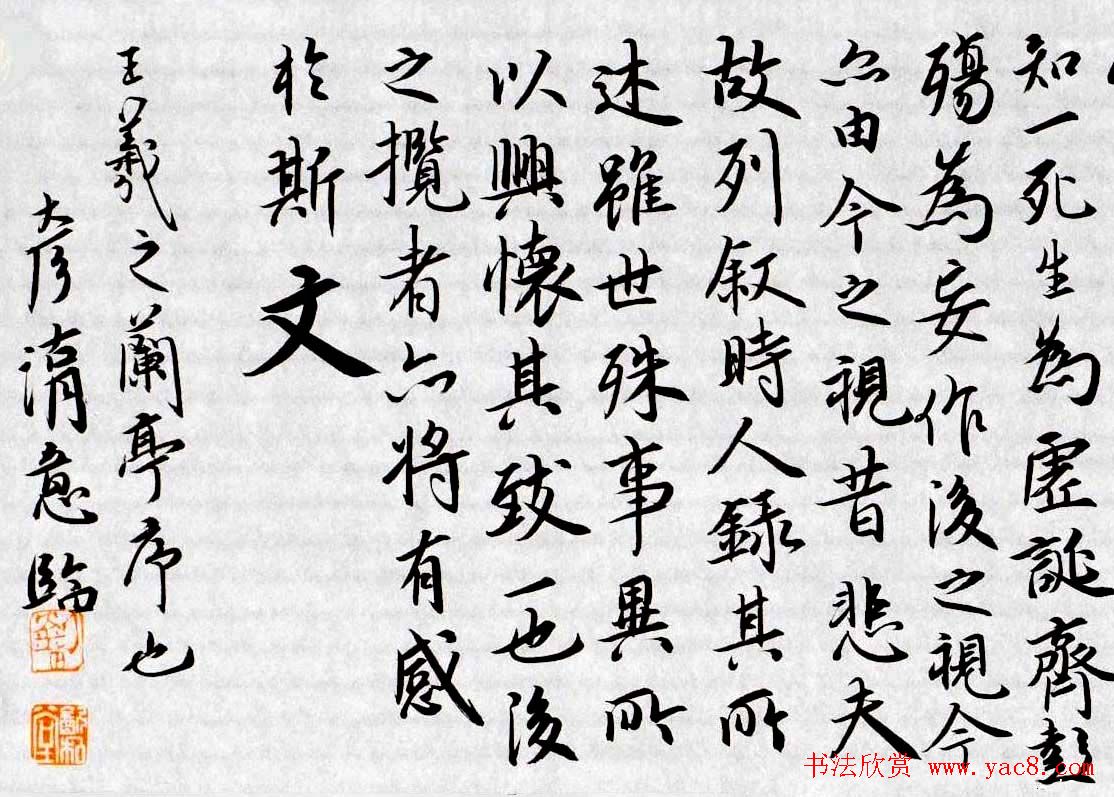 知一死生為虛誕齊彭
殤為妄作後之視今
亦由今之視昔悲夫
故列叙時人錄其所
述雖世殊事異所
以興懷其致一也後
之攬者亦將有感
於斯文
王羲之蘭亭序也
彥清意臨
书法欣赏 www.yac8.com